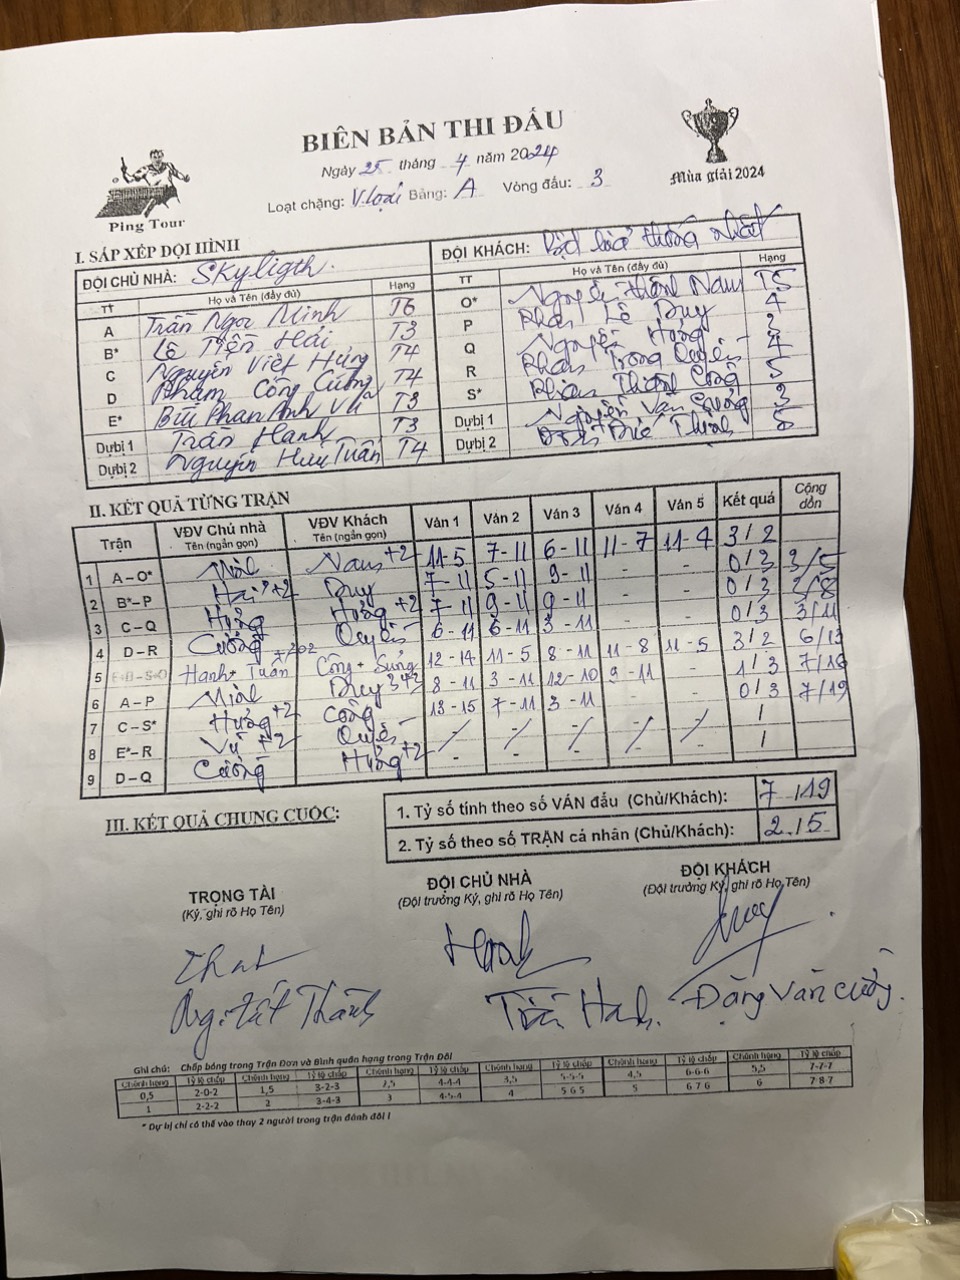 BIÊN BẢN THI ĐẤU
Ngày 25 tháng 4 năm 2024
Loạt chặng: V.loại Bảng: A Vòng đấu: 3
Ping Tour
Mùa giải 2024
I. SẮP XẾP ĐỘI HÌNH
ĐỘI CHỦ NHÀ: Skyligth.
ĐỘI KHÁCH: thống nhất
TT Họ và Tên (đầy đủ) Hạng
A Trần Ngọc Minh T6
B* Lê Tiến Hải T3
C Nguyễn Việt Hưng T4
D Phạm Công Cường T4
E* Bùi Phan Anh Vũ T3
Dựbị 1 Trần Hanh T3
Dựbị 2 Nguyễn Hữu Tuấn T4
TT Họ và Tên (đầy đủ) Hạng
O* Nam T5
P Phan Lê Duy 4
Q Nguyễn Hưng 3
R Phan Trọng Quyền 4
S* Phan Thành Công 5
Dựbị 1 Nguyễn Văn 3
Dựbị 2 Thịnh 5
II. KẾT QUẢ TỪNG TRẬN
Trận VĐV Chủ nhà Tên (ngắn gọn) VĐV Khách Tên (ngắn gọn) Ván 1 Ván 2 Ván 3 Ván 4 Ván 5 Kết quả Cộng dồn
1 A – O* Minh Nam +2 11-5 7-11 6-11 11-7 11-4 3/2
2 B*– P Hải +2 Duy 7-11 5-11 9-11 - - 0/3 3/5
3 C – Q Hưng Hưng +2 7-11 9-11 9-11 - - 0/3 3/8
4 D – R Cường Quyền 6-11 6-11 3-11 - - 0/3 3/11
5 Hanh + Tuấn +202 Công + 12-14 11-5 8-11 11-8 11-5 3/2 6/13
6 A – P Minh Duy 3+2 8-11 3-11 12-10 9-11 - 1/3 7/16
7 C – S* Hưng +2 Công 13-15 7-11 3-11 - - 0/3 7/19
8 E*– R Vũ +2 Quyền - / - / - / - / - / /
9 D – Q Cường Hưng +2 - - - - - /
III. KẾT QUẢ CHUNG CUỘC:
1. Tỷ số tính theo số VÁN đấu (Chủ/Khách): 7/19
2. Tỷ số theo số TRẬN cá nhân (Chủ/Khách): 2/5
TRỌNG TÀI
(Ký, ghi rõ Họ Tên)
ĐỘI CHỦ NHÀ
(Đội trưởng Ký, ghi rõ Họ Tên)
ĐỘI KHÁCH
(Đội trưởng Ký, ghi rõ Họ Tên)
Trần Hanh.
Đặng Văn Cường.
Ghi chú: Chấp bóng trong Trận Đơn và Bình quân hạng trong Trận Đôi
Chênh hạng Tỷ lệ chấp Chênh hạng Tỷ lệ chấp Chênh hạng Tỷ lệ chấp Chênh hạng Tỷ lệ chấp Chênh hạng Tỷ lệ chấp Chênh hạng Tỷ lệ chấp
0,5 2-0-2 1,5 3-2-3 2,5 4-4-4 3,5 5-5-5 4,5 6-6-6 5,5 7-7-7
1 2-2-2 2 3-4-3 3 4-5-4 4 5 6 5 5 6 7 6 6 7 8 7
* Dự bị chỉ có thể vào thay 2 người trong trận đánh đôi !